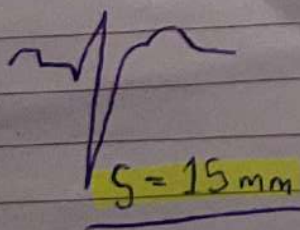 S = 15 mm